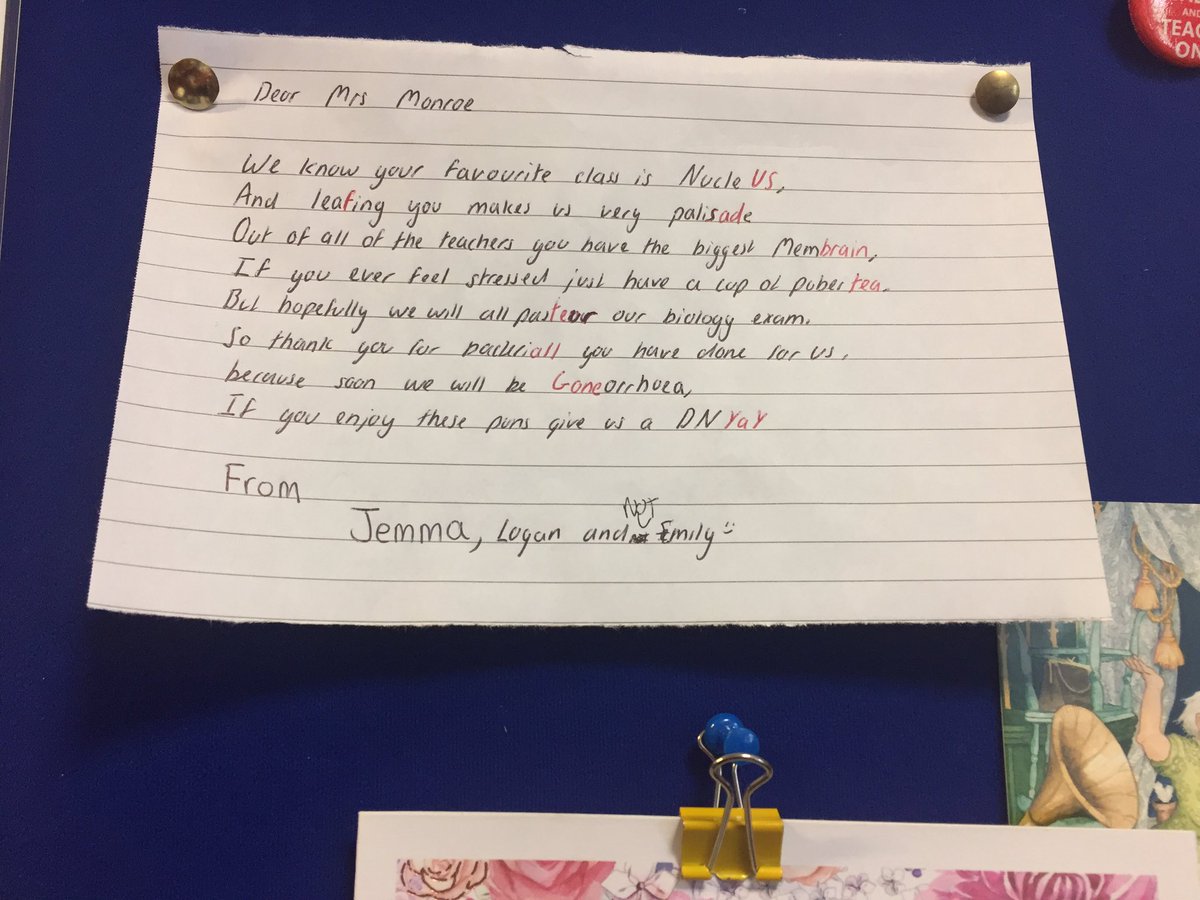 AND
TEAC
ON
Dear Mrs Monroe
We know your favourite class is NucleUS,
And leafing you makes us very palisade
Out of all of the teachers you have the biggest Membrain,
If you ever feel stressed just have a cup of pubertea.
But hopefully we will all pasteur our biology exam.
So thank you for bacteriall you have done for us,
because soon we will be Goneorrhoea,
If you enjoy these puns give us a DNYaY
From
NOT
Jemma, Logan and Emily